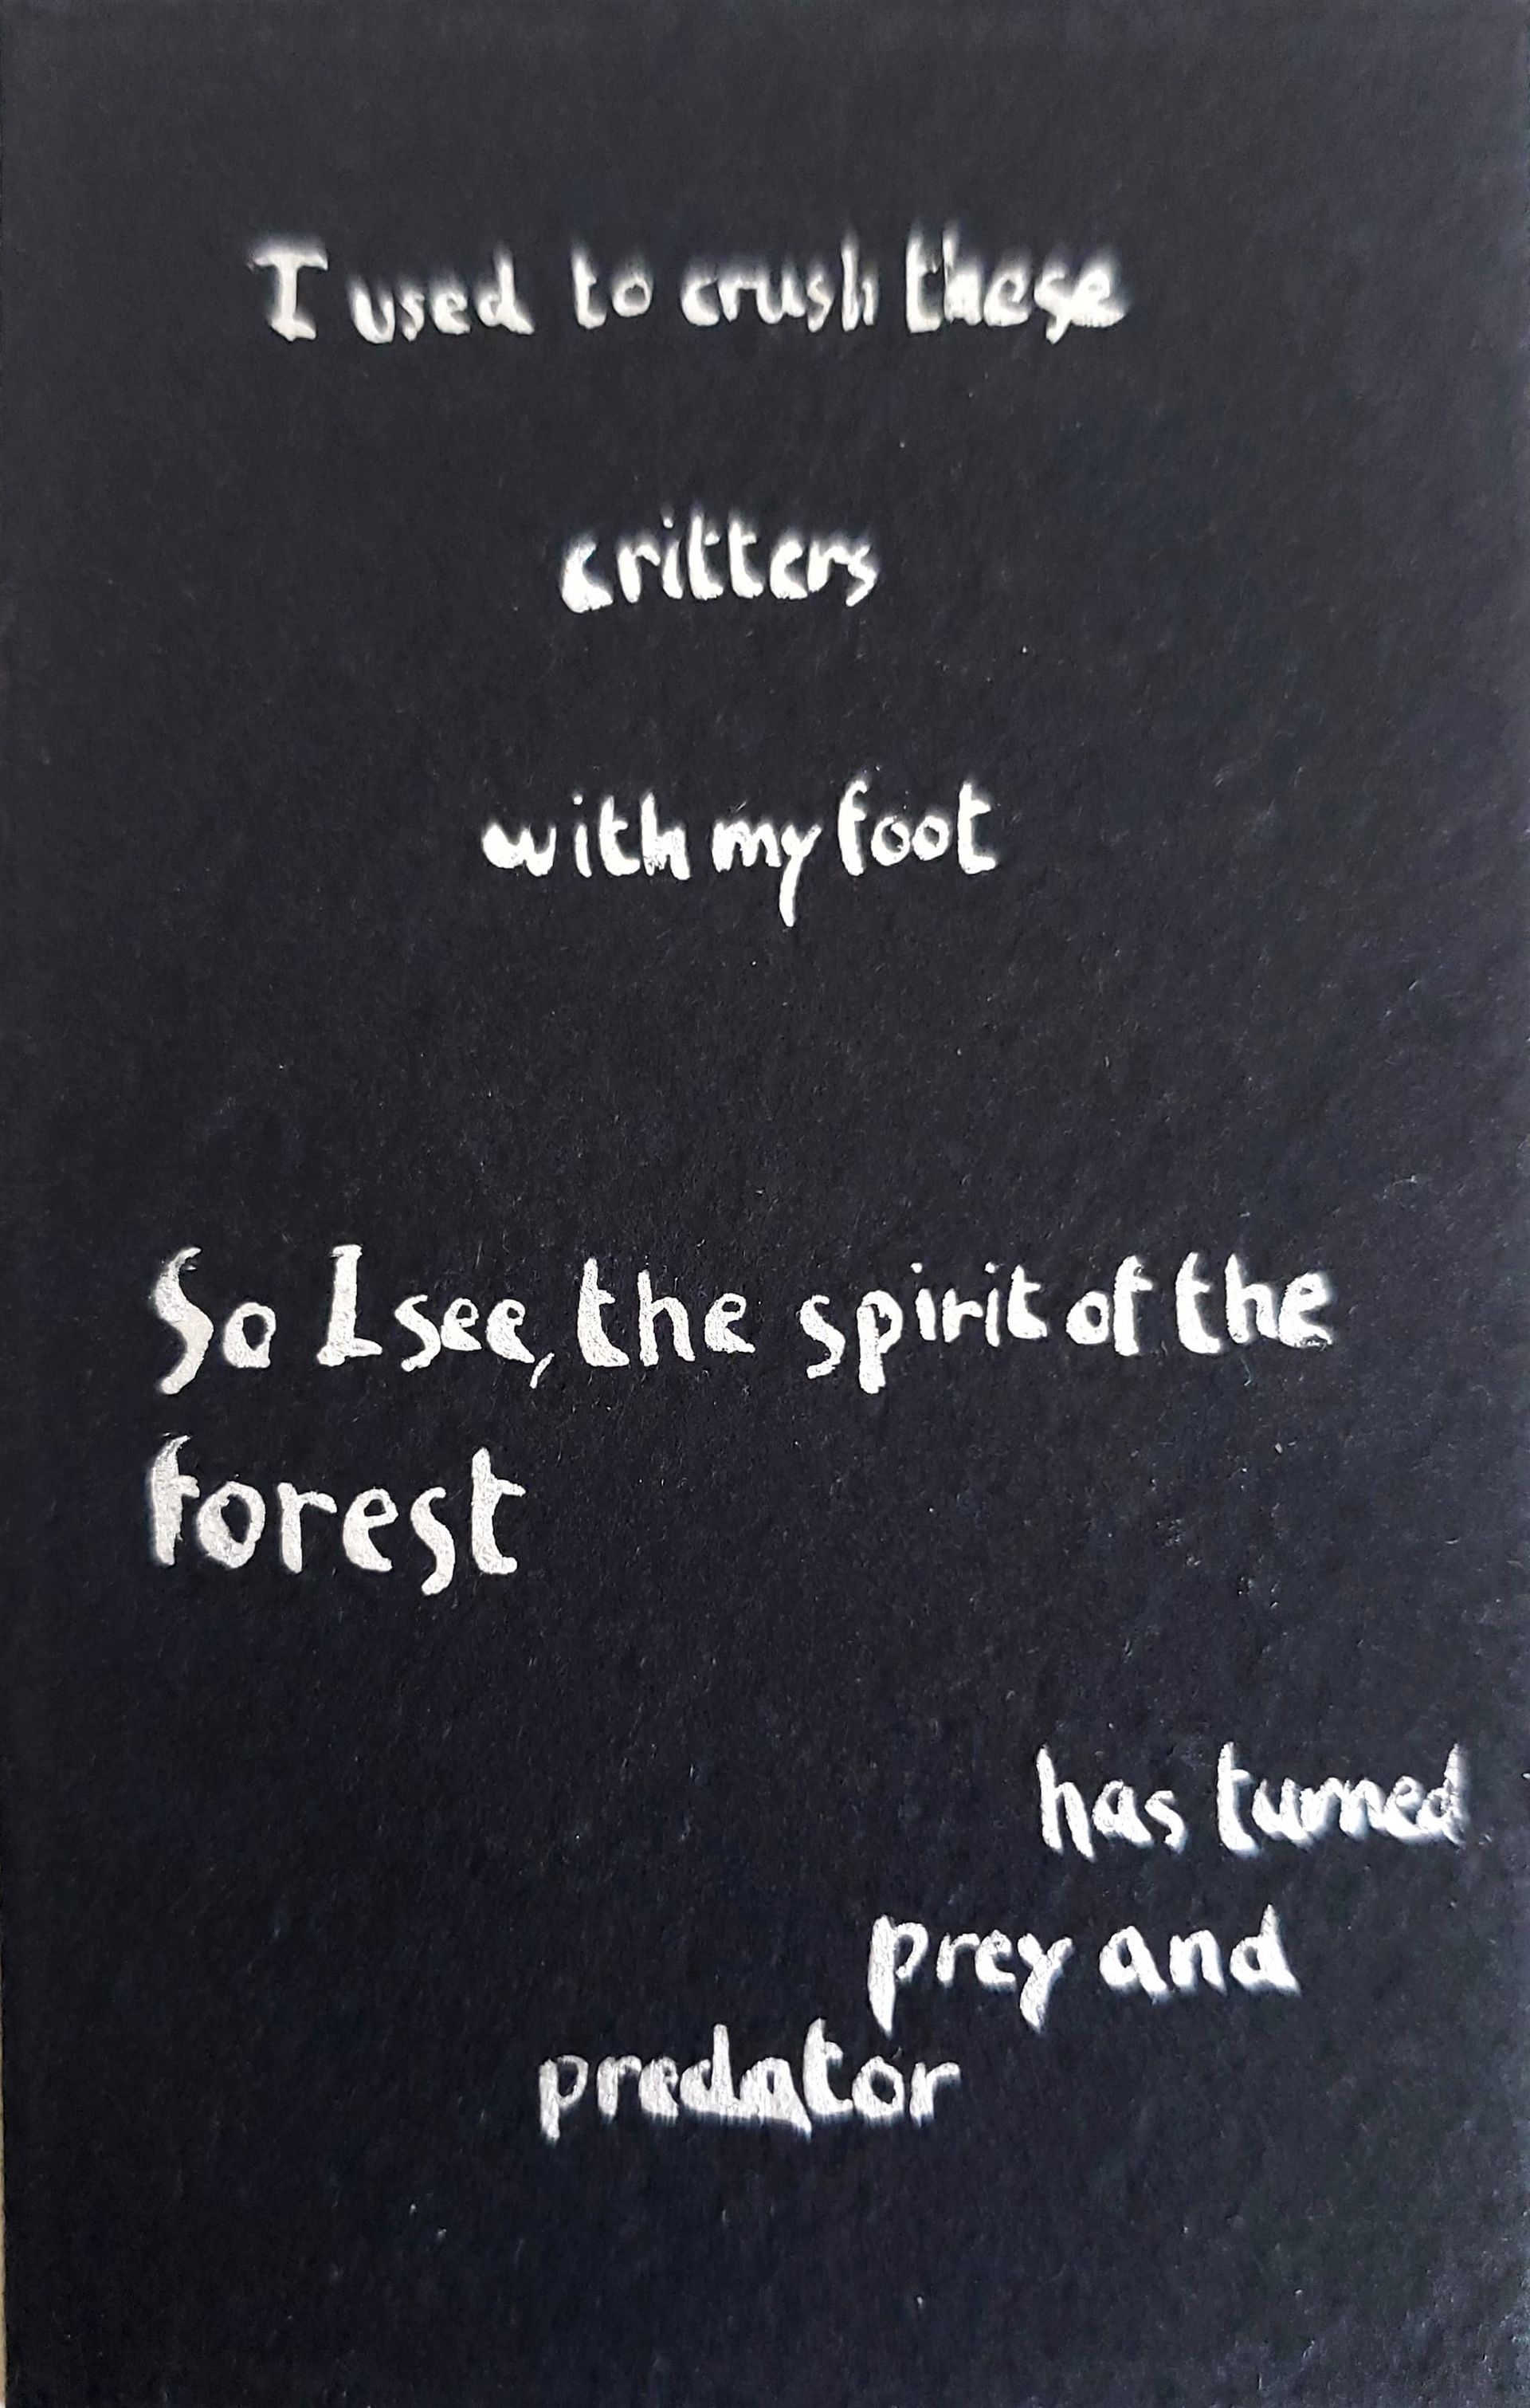 I used to crush these
critters
with my foot
So I see, the spirit of the
forest
has turned
prey and
predator